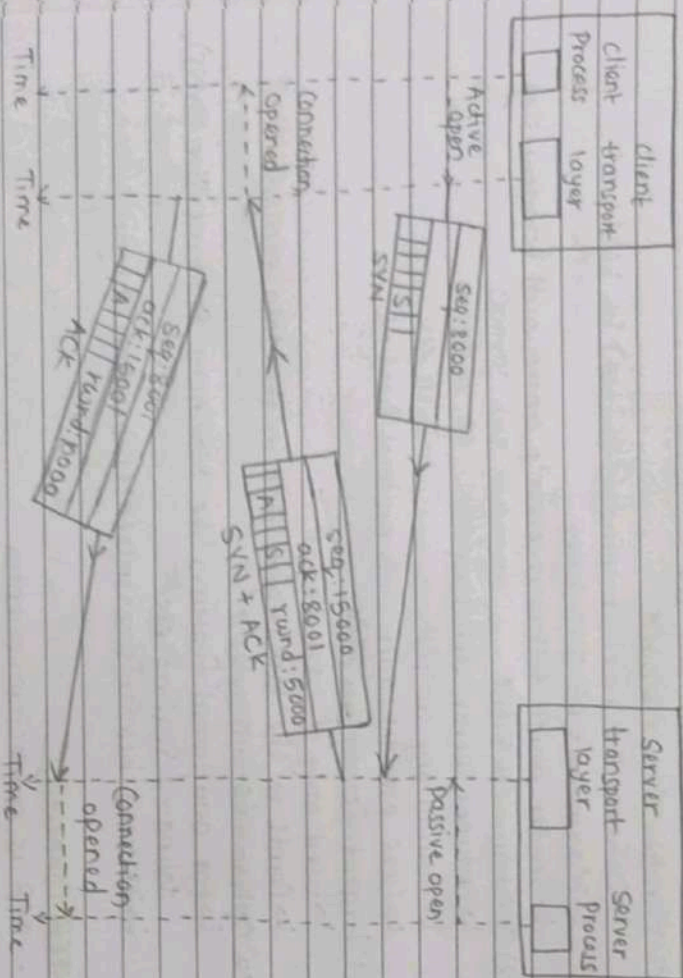 client
client transport
Process layer
Server
transport Server
layer Process
Active
open
Passive open
seq:8000
S
SYN
seq:15000
ack:8001
A S rwnd:5000
SYN + ACK
Connection
opened
seq:8001
ack:15001
A
ACK
Connection
opened
Time Time Time Time